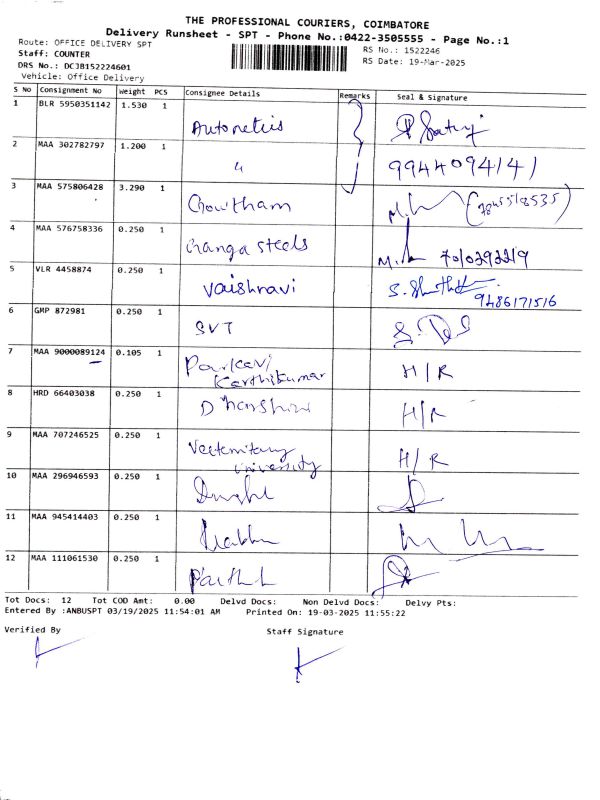 THE PROFESSIONAL COURIERS, COIMBATORE
Delivery Runsheet - SPT - Phone No.:0422-3505555 - Page No.:1
Route: OFFICE DELIVERY SPT
RS No.: 1522246
Staff: COUNTER
RS Date: 19-Mar-2025
DRS No.: DCJB152224601
Vehicle: Office Delivery
S No Consignment No Weight PCS Consignee Details Remarks Seal & Signature
1 BLR 5950351142 1.530 1
2 MAA 302782797 1.200 1 " 9944094141
3 MAA 575806428 3.290 1 Gowtham
4 MAA 576758336 0.250 1 Ganga steels 7010292219
5 VLR 4458874 0.250 1 Vaishnavi 9486171516
6 GMP 872981 0.250 1 SVT
7 MAA 9000089124 0.105 1 Karthikumar H/R
8 HRD 66403038 0.250 1 H/R
9 MAA 707246525 0.250 1 university H/R
10 MAA 296946593 0.250 1
11 MAA 945414403 0.250 1
12 MAA 111061530 0.250 1
Tot Docs: 12 Tot COD Amt: 0.00 Delvd Docs: Non Delvd Docs: Delvy Pts:
Entered By :ANBUSPT 03/19/2025 11:54:01 AM Printed On: 19-03-2025 11:55:22
Verified By Staff Signature